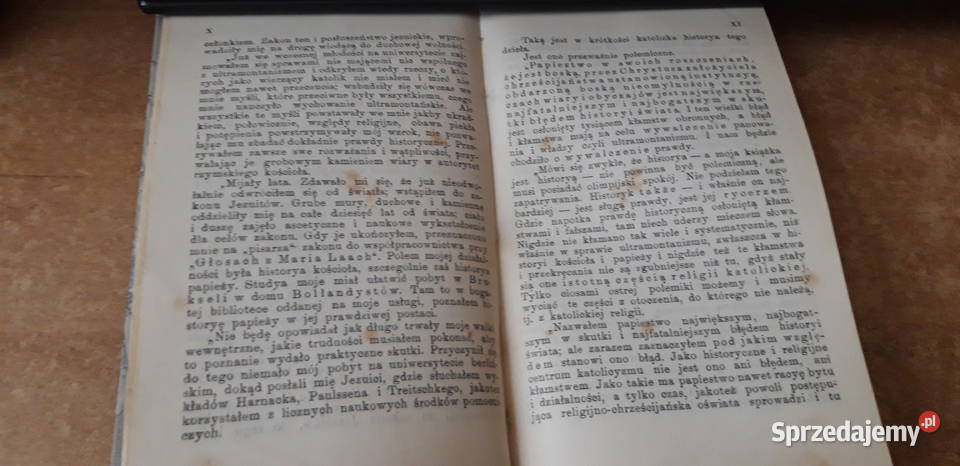 X
członkiem. Zakon ten i posłuszeństwo jezuickie, wpro-
wadziły mię na drogę wiodącą do duchowej wolności.
„Już we wczesnej młodości na uniwersytecie zaj-
mowałem się sprawami nie mającemi nic wspólnego
z ultramontanizmem i odkryłem wtedy rzeczy, o któ-
rych jako wierzący katolik nie miałem i mieć nie
mogłem nawet przeczucia; wzbudziły się wówczas we
mnie myśli, które przeciwne były wszystkiemu, czego
mnie nauczyło wychowanie ultramontańskie. Ale
wszystkie te myśli powstawały we mnie jakby ukrad-
kiem, połowicznie, względy religijne, obawa piekła
i potępienia powstrzymywały mój wzrok, nie pozwa-
lając mu zbadać dokładnie prawdy historycznej. Prze-
rywałem zawsze swe rozważania i wątpliwości, przy-
walając je grobowym kamieniem wiary w autorytet
rzymskiego kościoła.
„Mijały lata. Zdawało mi się, że już nieodwo-
łalnie odwróciłem się od światła; wstąpiłem do za-
konu Jezuitów. Grube mury, duchowe i kamienne
oddzieliły mię na całe dziesięć lat od świata; ciało
i duszę zajęło ascetyczne i naukowe wykształcenie
dla celów zakonu. Gdy je ukończyłem, przeznaczono
mnie na „pisarza“ zakonu do współpracownictwa przy
„Głosach z Maria Laach“. Polem mojej działal-
ności była historya kościoła, szczególnie zaś historya
papieży. Studya moje miał ułatwić pobyt w Bru-
kseli w domu Bollandystów. Tam to w boga-
tej bibliotece oddanej na moje usługi, poznałem hi-
storyę papieży w jej prawdziwej postaci.
„Nie będę opowiadał jak długo trwały moje walki
wewnętrzne, jakie trudności musiałem pokonać, aby
to poznanie wydało praktyczne skutki. Przyczynił się
do tego niemało mój pobyt na uniwersytecie berliń-
skim, dokąd posłali mię Jezuici, gdzie słuchałem wy-
kładów Harnacka, Paulssena i Treitschkego, jakoteż
korzystałem z licznych naukowych środków pomocni-
czych.
XI
Taką jest w krótkości katolicka historya tego
dzieła.
Jest ono przeważnie polemiczne.
„Papiestwo w swoich roszczeniach,
że jest boską, przez Chrystusa założyciela
chrześcijaństwa ustanowioną instytucyą,
obdarzoną boską nieomylnością w rze-
czach wiary i obyczajów jest największym,
najfatalniejszym i najbogatszym w sku-
tki błędem historyi świata. I ten wielki błąd
jest osłonięty tysiącem kłamstw obronnych, a błąd
i kłamstwa mają na celu wywalczenie panowa-
nia i władzy czyli ultramontanizmu. I nam będzie
chodziło o wywalczenie prawdy.
„Mówi się zwykle, że historya — a moja książka
jest historyą — nie powinna być polemiczną, ale
musi posiadać olimpijski spokój. Nie podzielam tego
zapatrywania. Historyk także — i właśnie on naj-
bardziej — jest sługą prawdy, jest jej rycerzem.
Gdzie napotka prawdę historyczną osłoniętą kłam-
stwami i fałszami, tam niech uderzy mieczem słowa.
Nigdzie nie kłamano tak wiele i systematycznie, niż
właśnie w sprawie ultramontanizmu, zwłaszcza w hi-
storyi kościoła i papieży i nigdzie też te kłamstwa
i przekręcania nie są zgubniejsze niż tu, gdyż stały
się one istotną częścią religii katolickiej.
Tylko ciosami ostrej polemiki możemy i musimy
wyciąć te części z otoczenia, do którego nie należą,
tj. z katolickiej religii.
„Nazwałem papiestwo największym, najbogat-
szym w skutki i najfatalniejszym błędem historyi
świata; ale zarazem zaznaczyłem pod jakim wzglę-
dem stanowi ono błąd. Jako historyczne i religijne
centrum katolicyzmu nie jest ono ani błędem, ani
kłamstwem. Jako takie ma papiestwo nawet racyę bytu
i działalności, a tylko czas, jakoteż powoli postępu-
jąca religijno-chrześcijańska oświata sprowadzi i tu
Sprzedajemy.pl